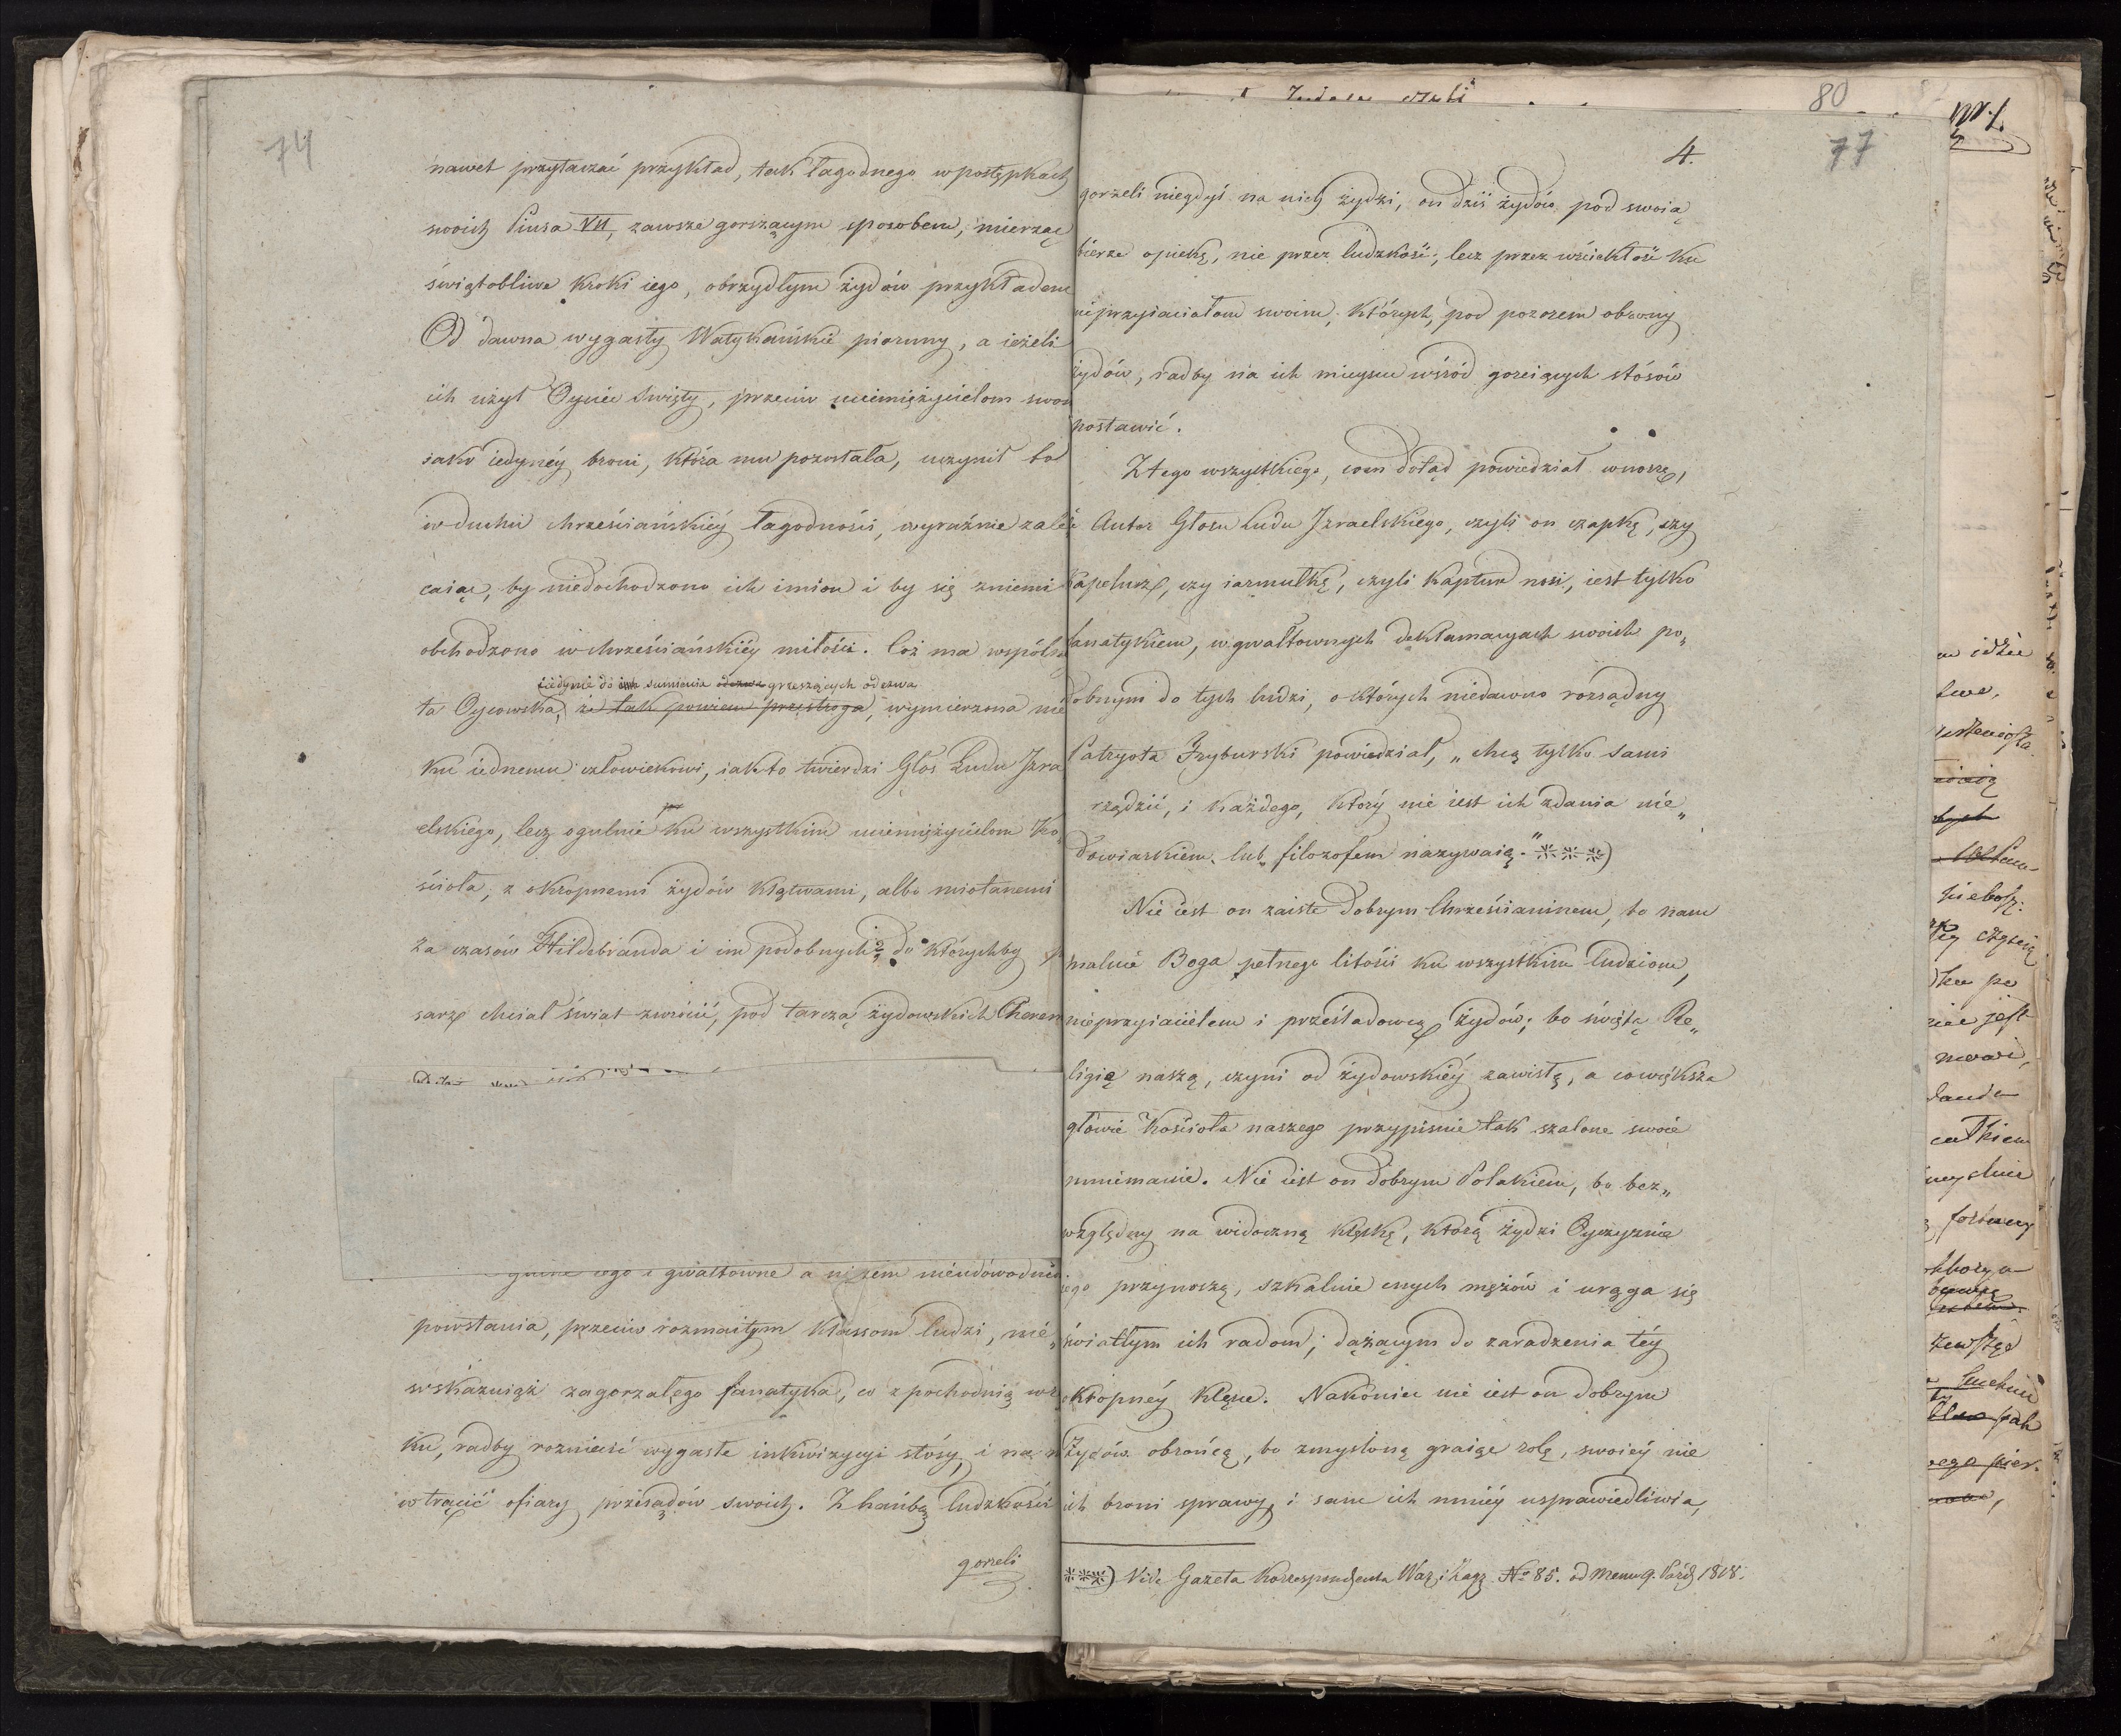 74
nawet przytaczać przykład, tak łagodnego w postępkach
swoich Piusa VII, zawsze gorszącym sposobem, mierząc
świątobliwe kroki iego, obrzydłym żydów przykładem
Od dawna wygasły Watykańskie pioruny, a ieżeli
ich użył Oyciec Swięty, przeciw uciemiężycielom swoi
jako iedynéy broni, która mu pozostała, uczynił to
w duchu chrześciańskiéy łagodności, wyraźnie zale
caiąc, by niedochodzono ich imion i by się zniemi
obchodzono w chrześciańskiéy miłości. Coż ma wspóln
iedynie do sumienia odezwa grzeszących odezwa
ta Oycowska, że tak powiem przestroga, wymierzona nie
ku iednemu człowiekowi, iak to twierdzi Głos Ludu Izra
elskiego, lecz ogulnie ku wszystkim uciemiężycielom Ko„
ścioła, z okropnemi żydów klątwami, albo miotanemi
za czasów Hildebranda i im podobnych? do którychby
sarz chciał świat zwrócić, pod tarczą żydowskich Cherem
iego i gwałtowne a niczem nieudowodnio
powstania, przeciw rozmaitym klassom ludzi, nie„
wskazuiąż zagorzałego fanatyka, co z pochodnią w rę
ku, radby rozniecić wygasłe inkwizycyi stósy, i na n
wtrącić ofiary przesądów swoich. Z hańbą ludzkości
gorzeli
80
4.
77
gorzeli niegdyś na nich żydzi, on dziś żydów pod swoią
bierze opiekę, nie przez ludzkość; lecz przez wściekłość ku
nieprzyiaciołom swoim, których, pod pozorem obrony
żydów, radby na ich mieyscu wśród goreiących stósów
postawić.
Z tego wszystkiego, com dotąd powiedział wnoszę,
że Autor Głosu Ludu Izraelskiego, czyli on czapkę, czy
kapelusz, czy iarmułkę, czyli kaptur nosi, iest tylko
fanatykiem, w gwałtownych deklamacyach swoich po„
dobnym do tych ludzi, o których niedawno rozsądny
Patryota Fryburski powiedział, „chcą tylko sami
rządzić, i każdego, który nie iest ich zdania nie„
dowiarkiem, lub filozofem nazywaią." ***)
Nie iest on zaiste dobrym Chrześcianinem, bo nam
maluie Boga pełnego litości ku wszystkim ludziom,
nieprzyiacielem i prześladowcą Żydów; bo świętą Re„
ligią naszą, czyni od żydowskiéy zawistą, a cowiększa
głowie Kościoła naszego przypisuie tak szalone swoie
mniemanie. Nie iest on dobrym Polakiem, bo bez„
względny na widoczną klęskę, którą żydzi Oyczyznie
iego przynoszą, szkaluie cnych mężów i urąga się
światłym ich radom, dążącym do zaradzenia téy
okropnéy klęsce. Nakoniec nie iest on dobrym
Żydów obrońcą, bo zmysloną graiąc rolę, swoiéy nie
ich broni sprawy, i sam ich mniéy usprawiedliwia,
***) Vide Gazeta Korrespondenta Warz. i Zagr. No 85. od 9. Paźdz 1818.